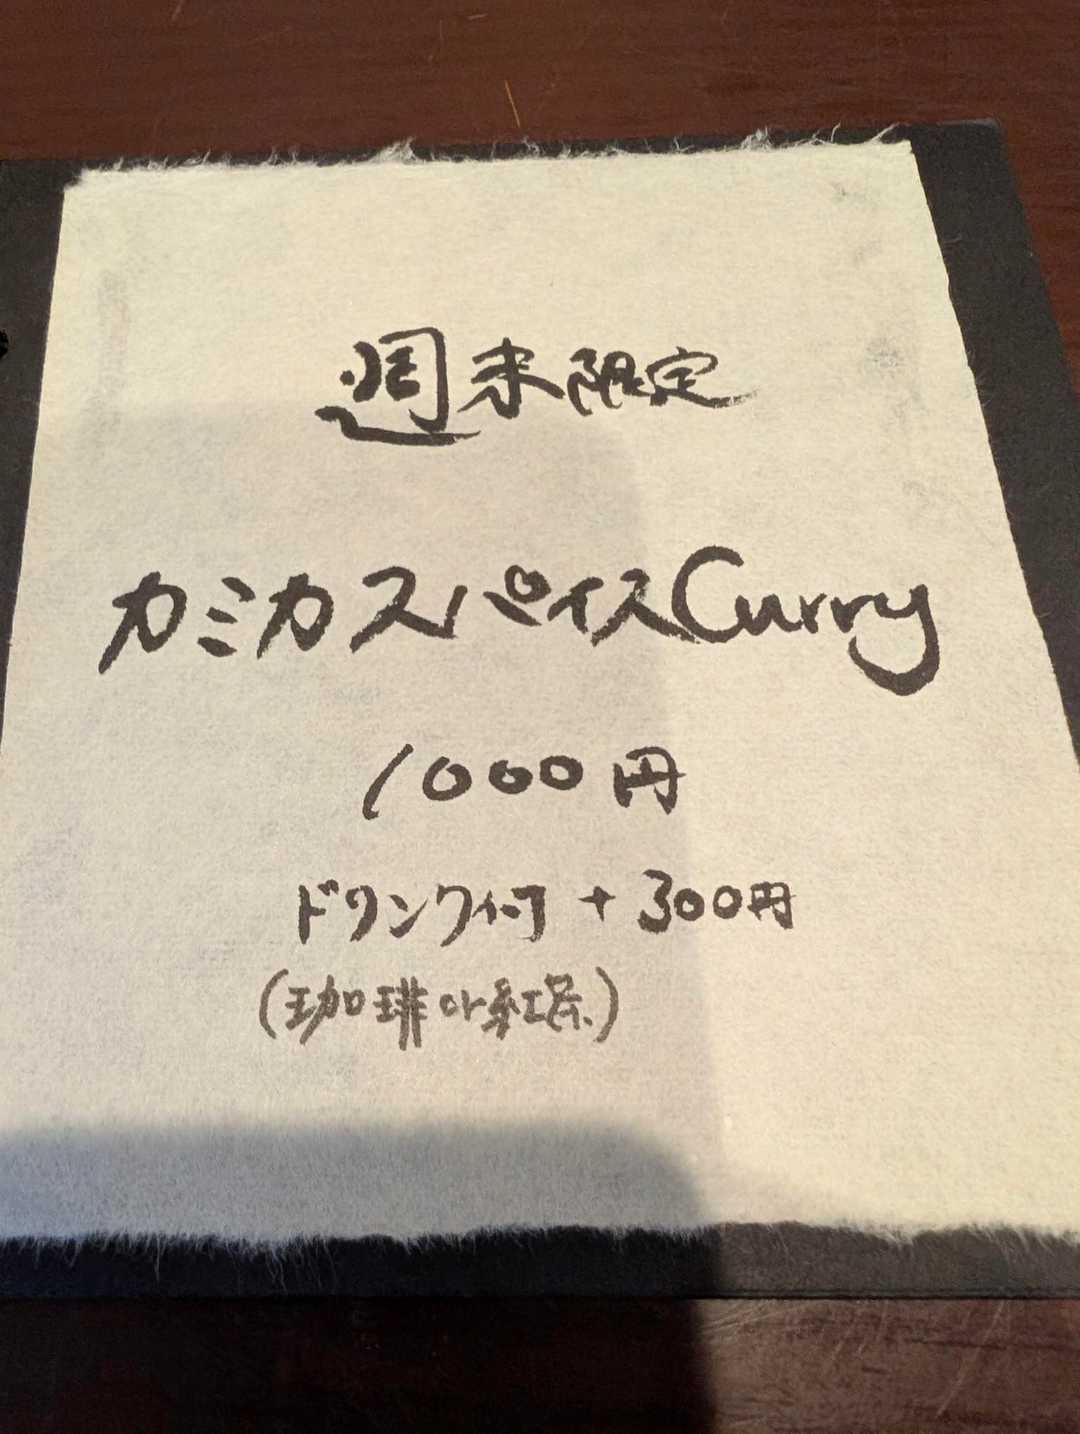 週末限定
カミカスパイスCurry
1000円
ドリンク付 + 300円
(珈琲or紅茶)